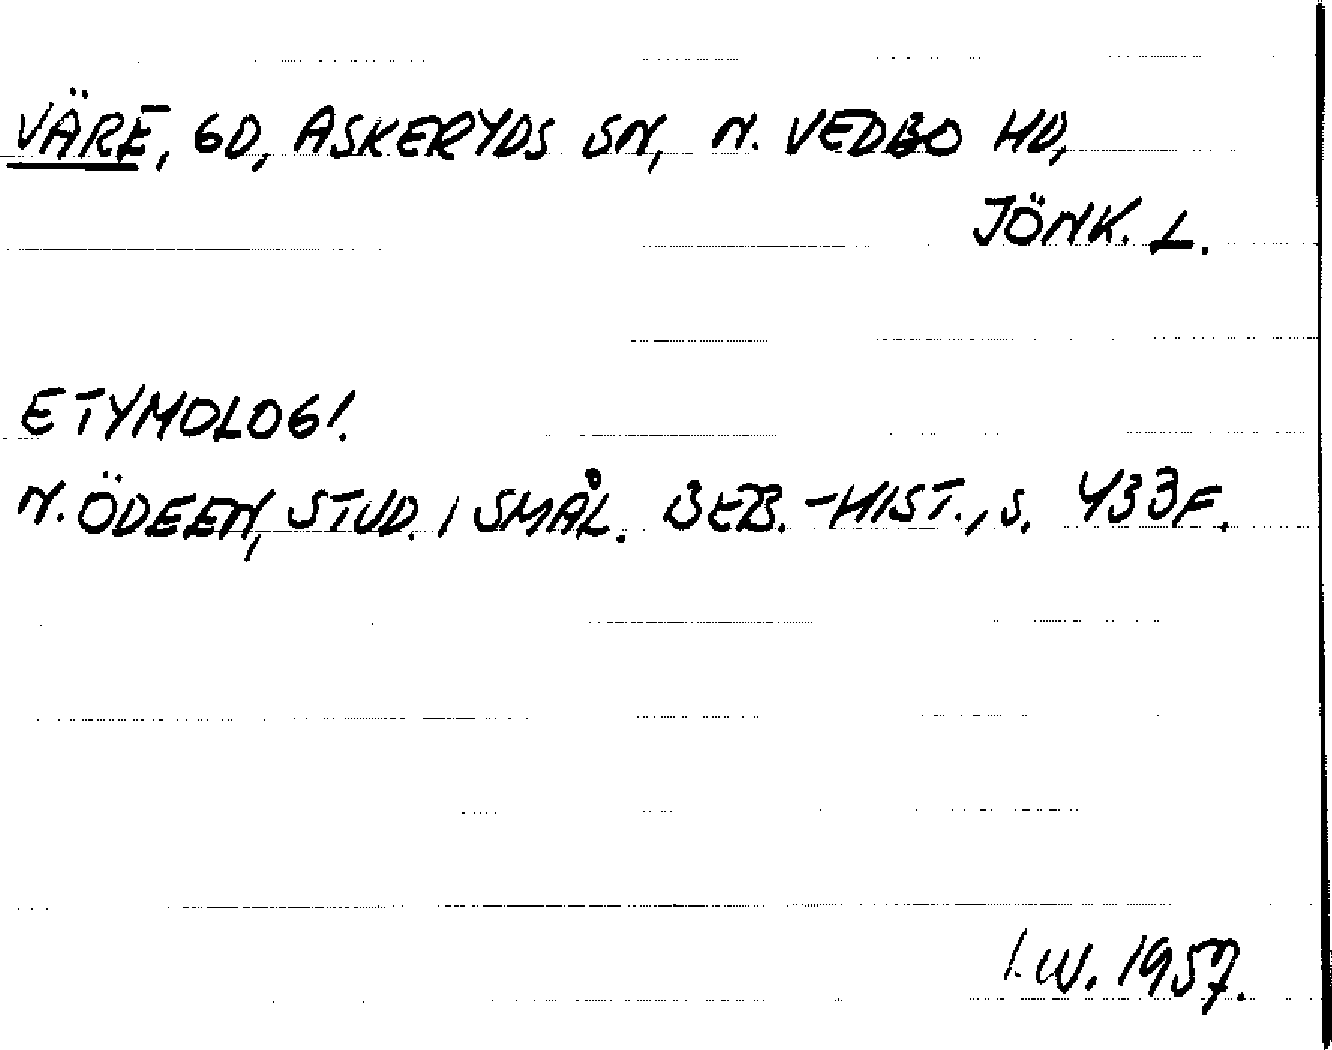 VÄRE, GD, ASKERYDS SN, N. VEDBO HD,
JÖNK. L.
ETYMOLOGI.
N. ÖDEEN, STUD. I SMÅL. BEB.-HIST., S. 433F.
I.W. 1957.